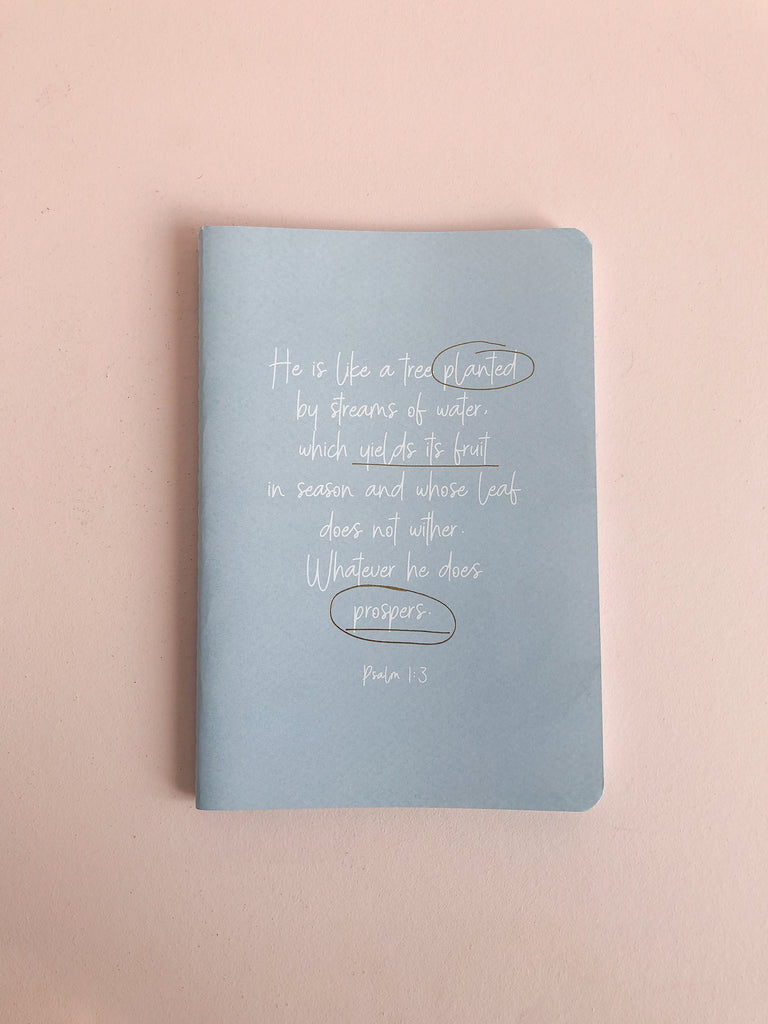 He is like a tree planted
by streams of water,
which yields its fruit
in season and whose leaf
does not wither.
Whatever he does
prospers.
Psalm 1:3